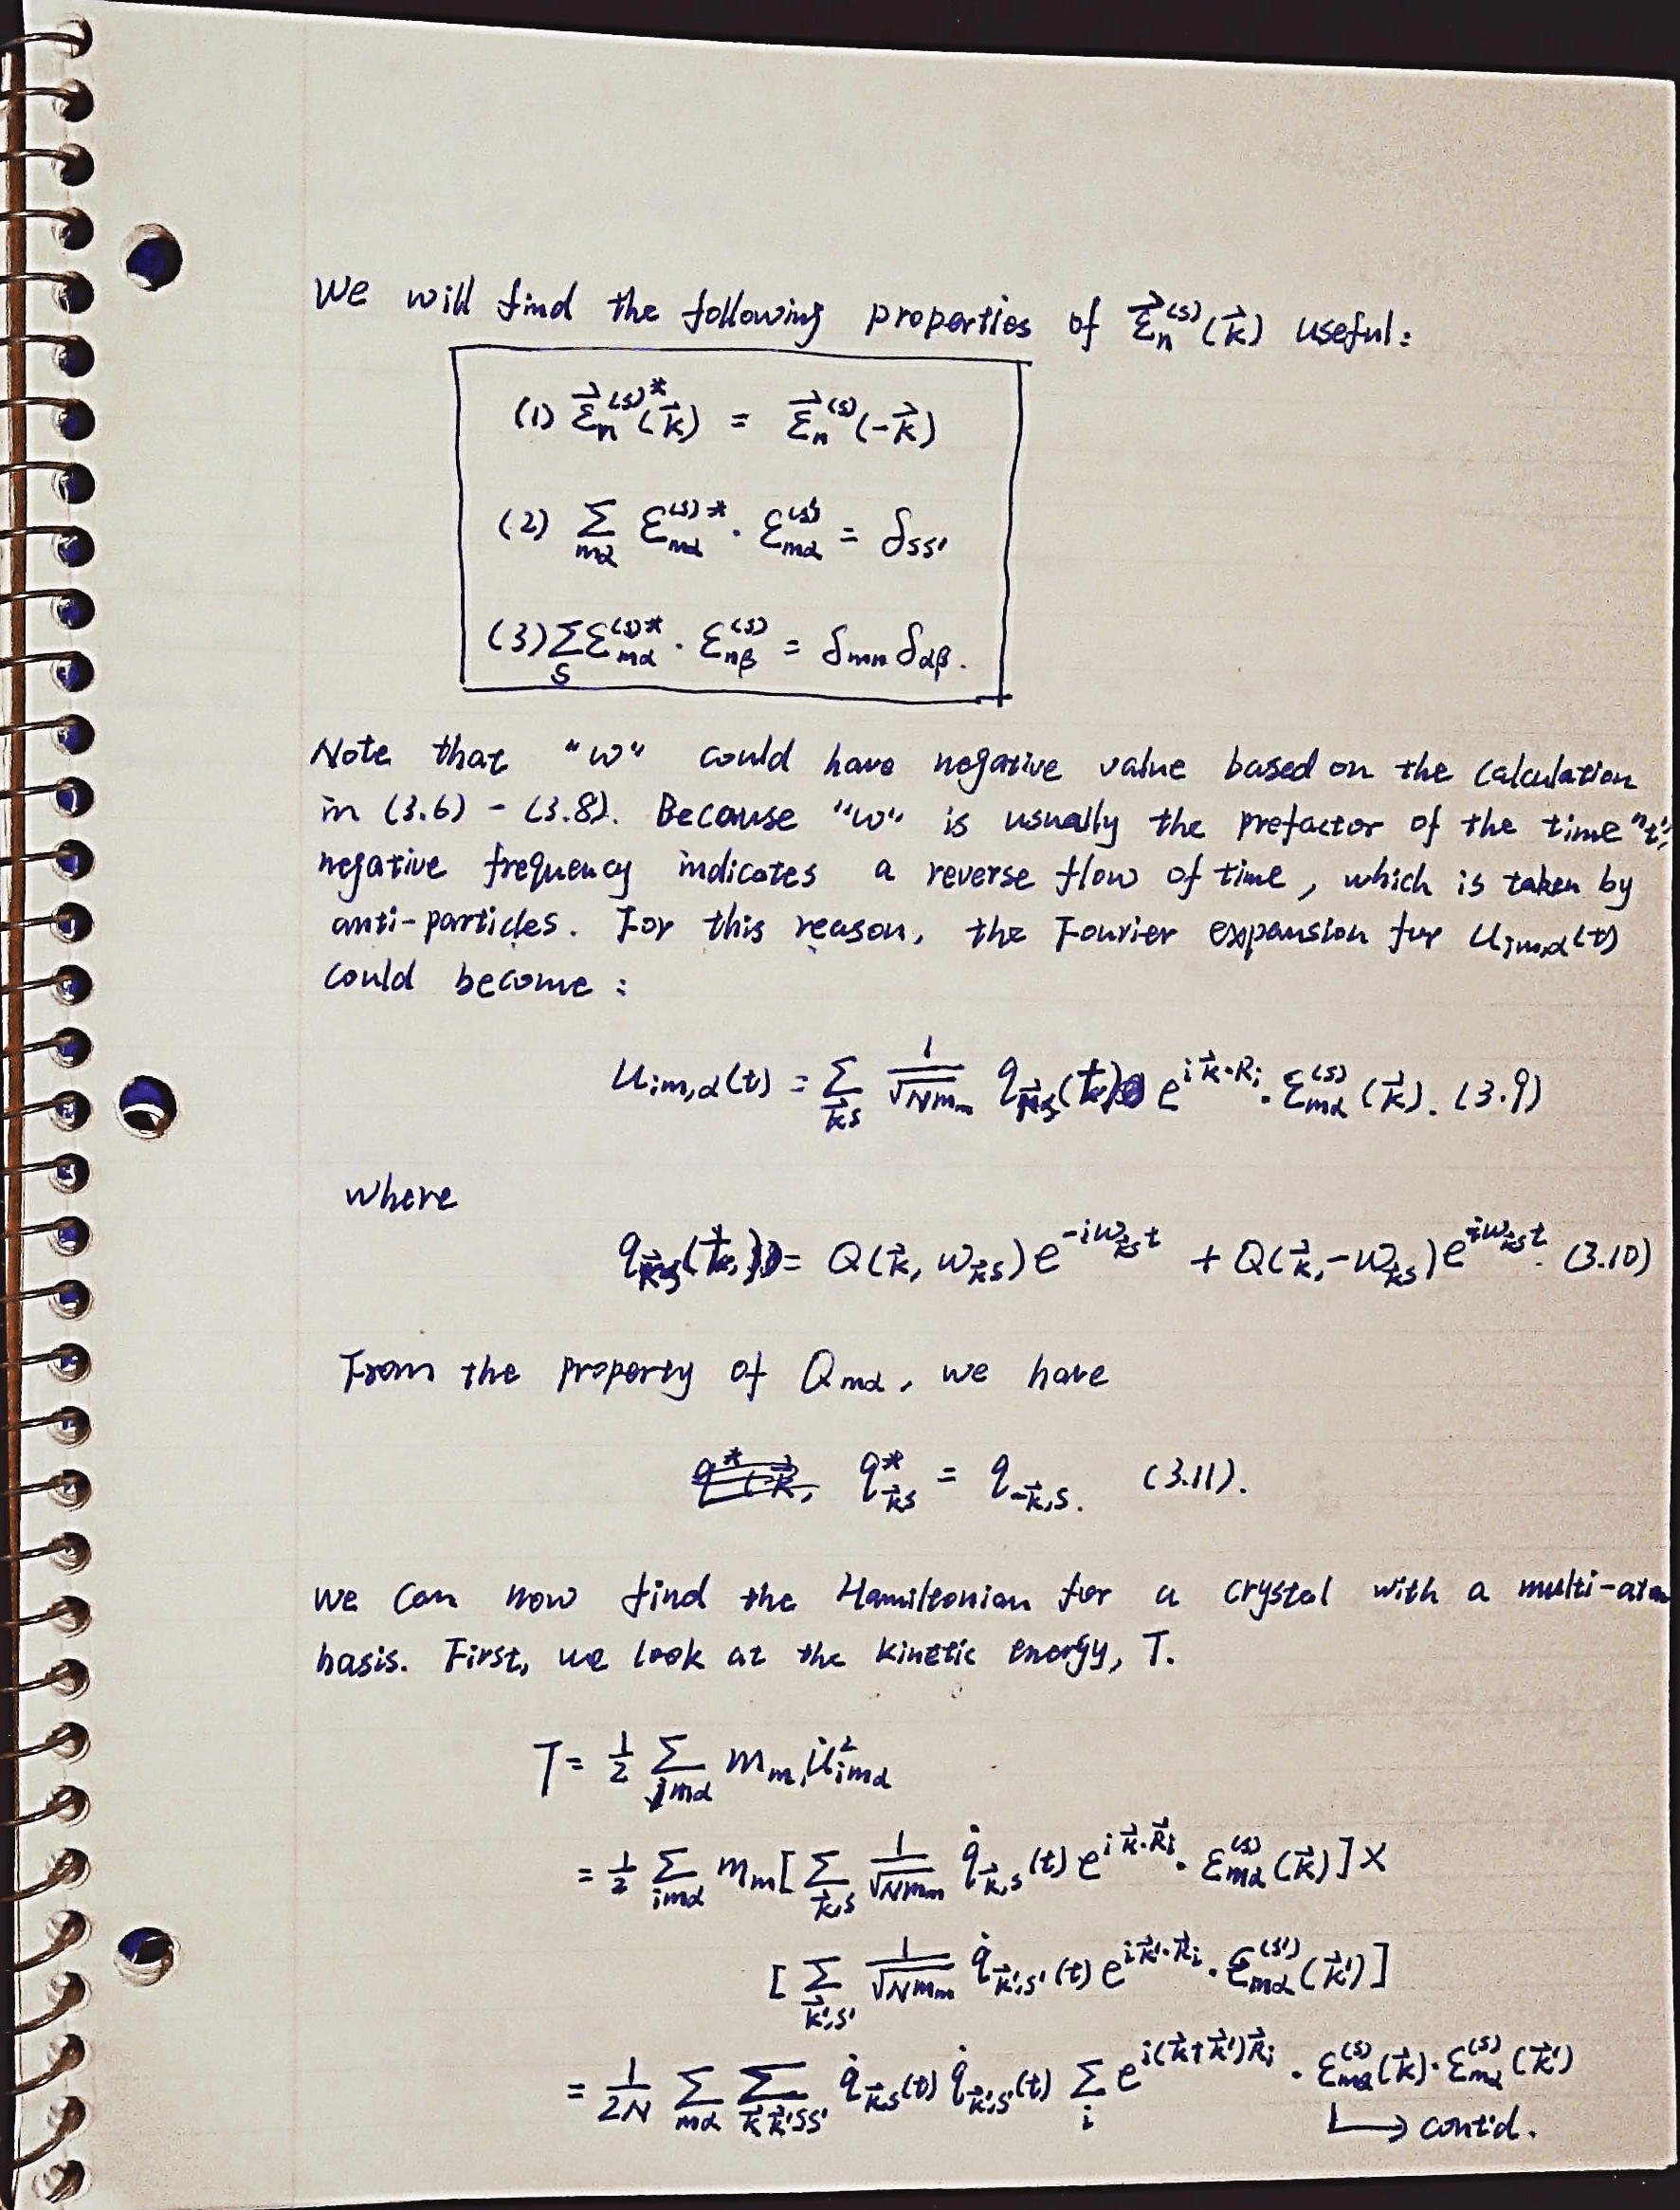 We will find the following properties of $\vec{\varepsilon}_n^{(s)}(\vec{k})$ useful:
(1) $\vec{\varepsilon}_n^{(s)*}(\vec{k}) = \vec{\varepsilon}_n^{(s)}(-\vec{k})$
(2) $\sum_{m\alpha} \varepsilon_{m\alpha}^{(s)*} \cdot \varepsilon_{m\alpha}^{(s')} = \delta_{ss'}$
(3) $\sum_s \varepsilon_{m\alpha}^{(s)*} \cdot \varepsilon_{n\beta}^{(s)} = \delta_{mn} \delta_{\alpha\beta}.$
Note that "w" could have negative value based on the calculation
in (3.6) - (3.8). Because "w" is usually the prefactor of the time "t",
negative frequency indicates a reverse flow of time, which is taken by
anti-particles. For this reason, the Fourier expansion for $u_{im,\alpha}(t)$
could become:
$u_{im,\alpha}(t) = \sum_{\vec{k}s} \frac{1}{\sqrt{Nm_m}} q_{\vec{k}s}(t) e^{i\vec{k}\cdot R_i} \cdot \varepsilon_{m\alpha}^{(s)}(\vec{k}).$ (3.9)
where
$q_{\vec{k}s}(t) = Q(\vec{k}, w_{\vec{k}s}) e^{-iw_{\vec{k}s}t} + Q(\vec{k}, -w_{\vec{k}s}) e^{iw_{\vec{k}s}t}.$ (3.10)
From the property of $Q_{m\alpha}$, we have
$q^*_{\vec{k}s} = q_{-\vec{k},s}.$ (3.11).
We can now find the Hamiltonian for a crystal with a multi-atom
basis. First, we look at the kinetic energy, T.
$T = \frac{1}{2} \sum_{im\alpha} m_m \dot{u}^2_{im\alpha}$
$= \frac{1}{2} \sum_{im\alpha} m_m [\sum_{\vec{k},s} \frac{1}{\sqrt{Nm_m}} \dot{q}_{\vec{k},s}(t) e^{i\vec{k}\cdot\vec{R}_i} \cdot \varepsilon_{m\alpha}^{(s)}(\vec{k})] \times$
$[\sum_{\vec{k}',s'} \frac{1}{\sqrt{Nm_m}} \dot{q}_{\vec{k}',s'}(t) e^{i\vec{k}'\cdot\vec{R}_i} \cdot \varepsilon_{m\alpha}^{(s')}(\vec{k}')]$
$= \frac{1}{2N} \sum_{m\alpha} \sum_{\vec{k}\vec{k}'ss'} \dot{q}_{\vec{k}s}(t) \dot{q}_{\vec{k}'s'}(t) \sum_i e^{i(\vec{k}+\vec{k}')\vec{R}_i} \cdot \varepsilon_{m\alpha}^{(s)}(\vec{k}) \cdot \varepsilon_{m\alpha}^{(s)}(\vec{k}')$
↳ cont'd.